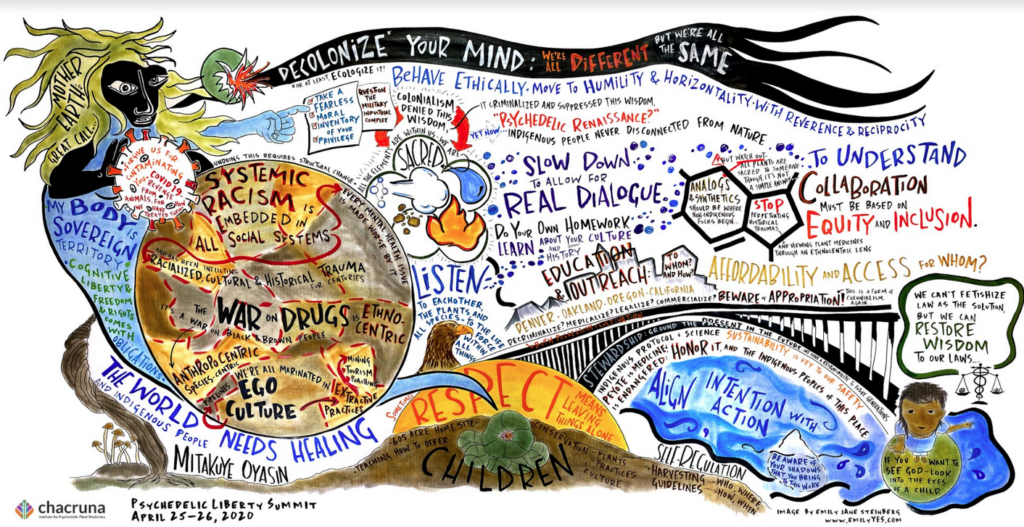 DECOLONIZE YOUR MIND: WE'RE ALL DIFFERENT BUT WE'RE ALL THE SAME
(OR AT LEAST, ECOLOGIZE IT!)
BEHAVE ETHICALLY. MOVE TO HUMILITY & HORIZONTALITY. WITH REVERENCE & RECIPROCITY
MOTHER
EARTH'S
GREAT CALL:
TAKE A
FEARLESS
MORAL
INVENTORY
OF YOUR
PRIVILEGE
QUESTION
THE
MILITARY
INDUSTRIAL
COMPLEX
COLONIALISM
DENIED THIS
WISDOM
IT CRIMINALIZED AND SUPPRESSED THIS WISDOM.
"PSYCHEDELIC RENAISSANCE?"
YET NOW
INDIGENOUS PEOPLE NEVER DISCONNECTED FROM NATURE
SACRED
COVID
MY BODY IS
SOVEREIGN
TERRITORY
COGNITIVE
LIBERTY &
FREEDOM
& RIGHTS
COMES
WITH
OBLIGATIONS
UNDOING THIS REQUIRES STRUCTURAL CHANGE
SYSTEMIC
RACISM IS
EMBEDDED IN
ALL SOCIAL SYSTEMS
EVERY MENTAL HEALTH ISSUE
IS MADE WORSE BY IT
HAS BEEN INFLICTING
RACIALIZED, CULTURAL & HISTORICAL TRAUMA
FOR CENTURIES
THE WAR ON DRUGS IS ETHNO-
CENTRIC
IT'S A WAR ON BLACK & BROWN PEOPLE
ANTHROPOCENTRIC
SPECIES-CENTRIC
WE'RE ALL MARINATED IN
EGO
CULTURE
PIPELINES
MINING
TOURISM
POACHING
EXTRACTIVE
PRACTICES
THE WORLD
AND INDIGENOUS PEOPLE
NEEDS HEALING
MITAKUYE OYASIN
SLOW DOWN
TO ALLOW FOR
REAL DIALOGUE
DO YOUR OWN HOMEWORK.
LEARN ABOUT YOUR CULTURE
AND HISTORY
LISTEN:
TO EACHOTHER,
THE PLANTS AND
ALL SPECIES; TO THE
LIFE FORCE
WITHIN
ALL
THINGS
EDUCATION
& OUTREACH:
TO
WHOM?
AND HOW?
DENVER. OAKLAND. OREGON. CALIFORNIA
DECRIMINALIZE? MEDICALIZE? LEGALIZE? COMMERCIALIZE?
BUT WATCH OUT.
ALL PLANTS ARE
SACRED TO SOMEONE
ANALOGS
& SYNTHETICS
SHOULD BE WHERE
NON-INDIGENOUS
FOLKS BEGIN...
STOP
PERPETUATING
HISTORICAL
TRAUMAS
AND VIEWING PLANT MEDICINES
THROUGH AN ETHNOCENTRIC LENS
TO UNDERSTAND
COLLABORATION
MUST BE BASED ON
EQUITY AND INCLUSION.
AFFORDABILITY AND ACCESS FOR WHOM?
BEWARE OF APPROPRIATION!
THIS IS A FORM OF
COLONIALISM,
AGAIN.
WE CAN'T FETISHIZE
LAW AS THE SOLUTION,
BUT WE CAN
RESTORE
WISDOM
TO OUR LAWS...
STEWARDSHIP: GROUND THE PRESENT IN THE FUTURE
INDIGENOUS PROTOCOL + SCIENCE
SUSTAINABILITY IS KEY TO OUR SAFETY
PEYOTE = MEDICINE:
HONOR IT, AND THE INDIGENOUS PEOPLES OF THIS PLACE
IS ENDANGERED:
SOMETIMES
RESPECT
MEANS
LEAVING
THINGS ALONE
605 ACRE HOMESITE
TEACHING HOW TO OFFER
CHILDREN
CONSERVATION
PLANTS
PRACTICES
CULTURE
SELF-REGULATION
HARVESTING
GUIDELINES
WHO, WHERE
HOW, WHEN
ALIGN INTENTION WITH
ACTION
BEWARE OF
YOUR SHADOWS
THAT YOU BRING
TO THIS WORK
IF YOU WANT TO
SEE GOD-LOOK
INTO THE EYES
OF A CHILD
chacruna
Institute for Psychedelic Plant Medicines
PSYCHEDELIC LIBERTY SUMMIT
APRIL 25-26, 2020
IMAGE BY EMILY JANE STEINBERG
WWW.EMILYYES.COM